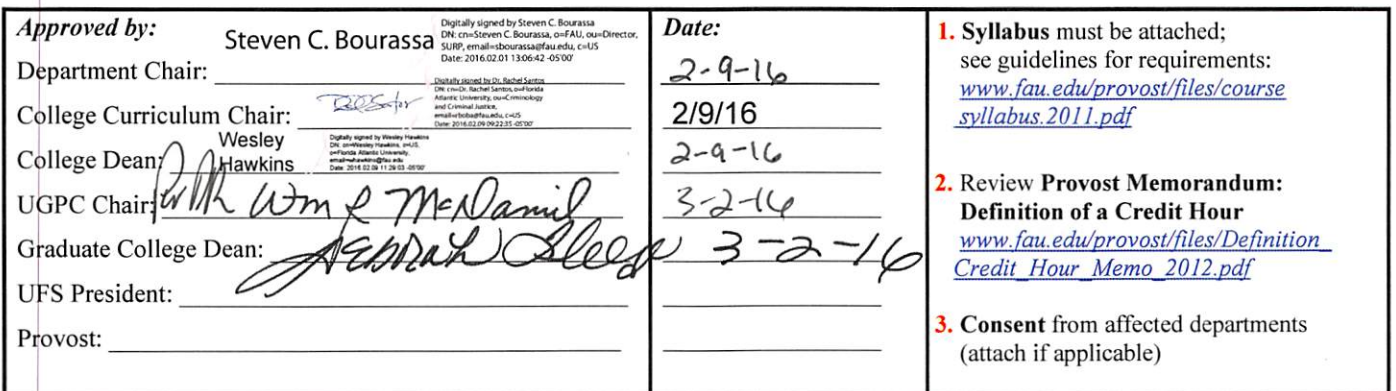 Approved by:
Steven C. Bourassa
Digitally signed by Steven C. Bourassa
DN: cn=Steven C. Bourassa, o=FAU, ou=Director,
SURP, email=sbourassa@fau.edu, c=US
Date: 2016.02.01 13:06:42 -05'00'
Department Chair:
Digitally signed by Dr. Rachel Santos
DN: cn=Dr. Rachel Santos, o=Florida
Atlantic University, ou=Criminology
and Criminal Justice,
email=rboba@fau.edu, c=US
Date: 2016.02.09 09:22:35 -05'00'
College Curriculum Chair:
Wesley
Hawkins
Digitally signed by Wesley Hawkins
DN: cn=Wesley Hawkins, o=US,
o=Florida Atlantic University,
email=whawkins@fau.edu
Date: 2016.02.09 11:29:03 -05'00'
College Dean:
UGPC Chair: Wm R McDaniel
Graduate College Dean: Deborah
UFS President:
Provost:
Date:
2-9-16
2/9/16
2-9-16
3-2-16
3-2-16
1. Syllabus must be attached;
see guidelines for requirements:
www.fau.edu/provost/files/course
syllabus.2011.pdf
2. Review Provost Memorandum:
Definition of a Credit Hour
www.fau.edu/provost/files/Definition_
Credit_Hour_Memo_2012.pdf
3. Consent from affected departments
(attach if applicable)